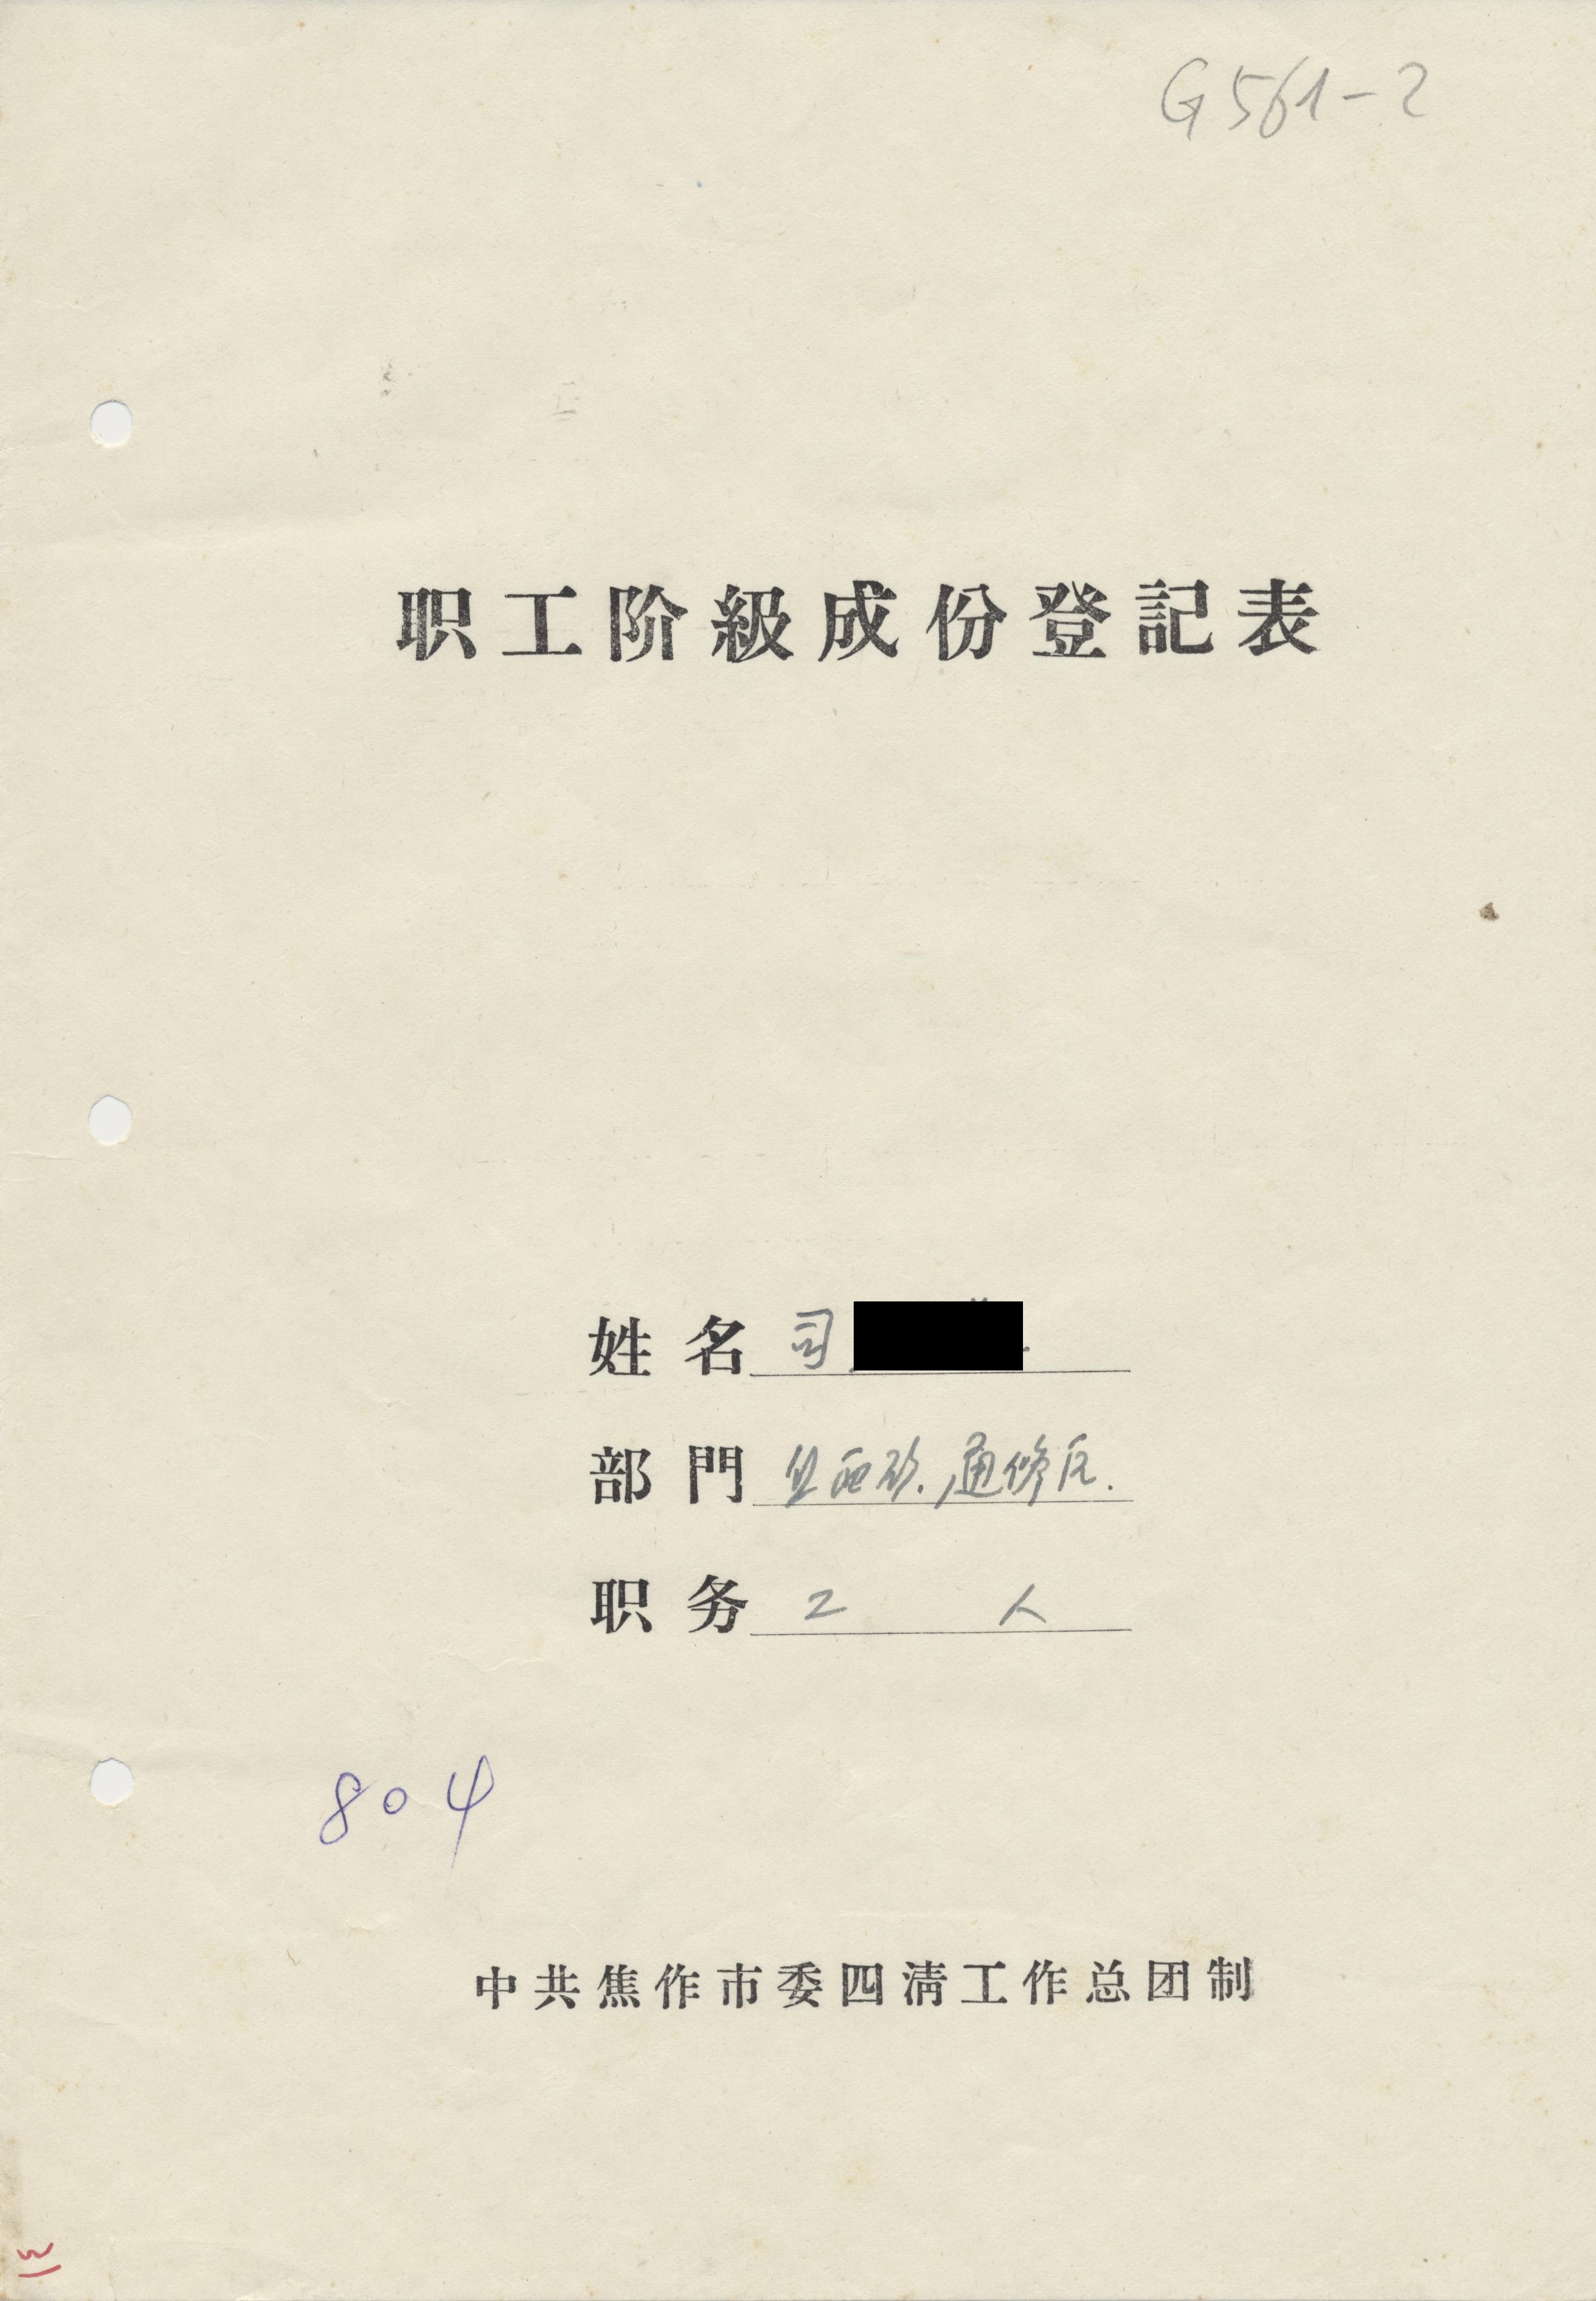 G561-2
职工阶級成份登記表
姓名 司
部門 西矿.通修区.
职务 工 人
804
中共焦作市委四淸工作总团制